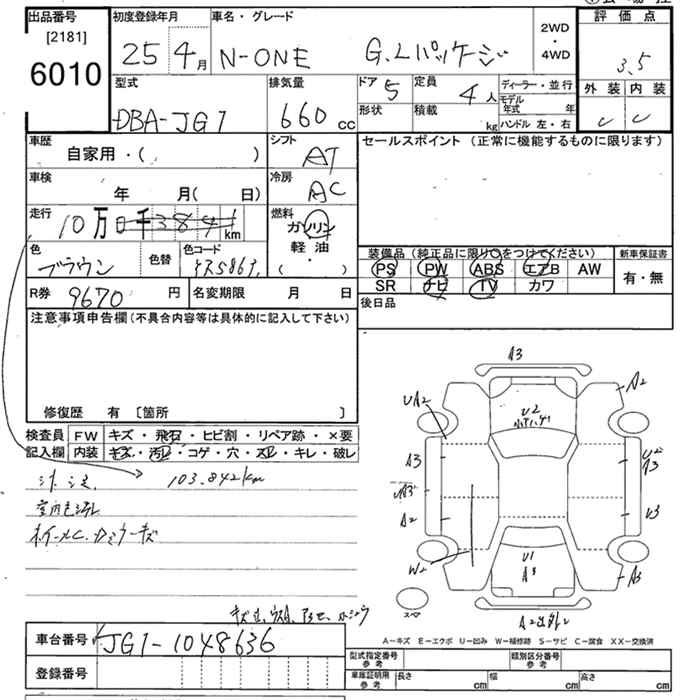 出品番号
[2181]
6010
初度登録年月
25 4月
車名・グレード
N-ONE G.Lパッケージ
2WD
・
4WD
評価点
3.5
型式
DBA-JG1
排気量
660 cc
ドア 5
形状
定員 4人
積載 kg
ディーラー・並行
モデル年式 年
ハンドル 左・右
外装 内装
C C
車歴
自家用・( )
シフト
AT
セールスポイント (正常に機能するものに限ります)
車検
年 月( 日)
冷房
AC
走行
10万0千384 km
燃料
ガソリン
軽油
( ・ )
色
ブラウン
色替
色コード
装備品 (純正品に限り○をつけてください)
新車保証書
PS PW ABS エアB AW
有・無
SR ナビ TV カワ
R券 9670 円
名変期限 月 日
後日品
注意事項申告欄 (不具合内容等は具体的に記入して下さい)
修復歴 有 [箇所 ]
検査員
記入欄
FW キズ・飛石・ヒビ割・リペア跡・×要
内装 キズ・汚レ・コゲ・穴・スレ・キレ・破レ
103.842km
A3
A2
UA2
U2
A3
U2
A3
A2
U3
W2
U1
A3
A3
スペア
A2
A−キズ E−エクボ U−凹み W−補修跡 S−サビ C−腐食 XX−交換済
車台番号 JG1-1048636
登録番号
型式指定番号
参考
類別区分番号
参考
車庫証明用
参考
長さ cm
幅 cm
高さ cm